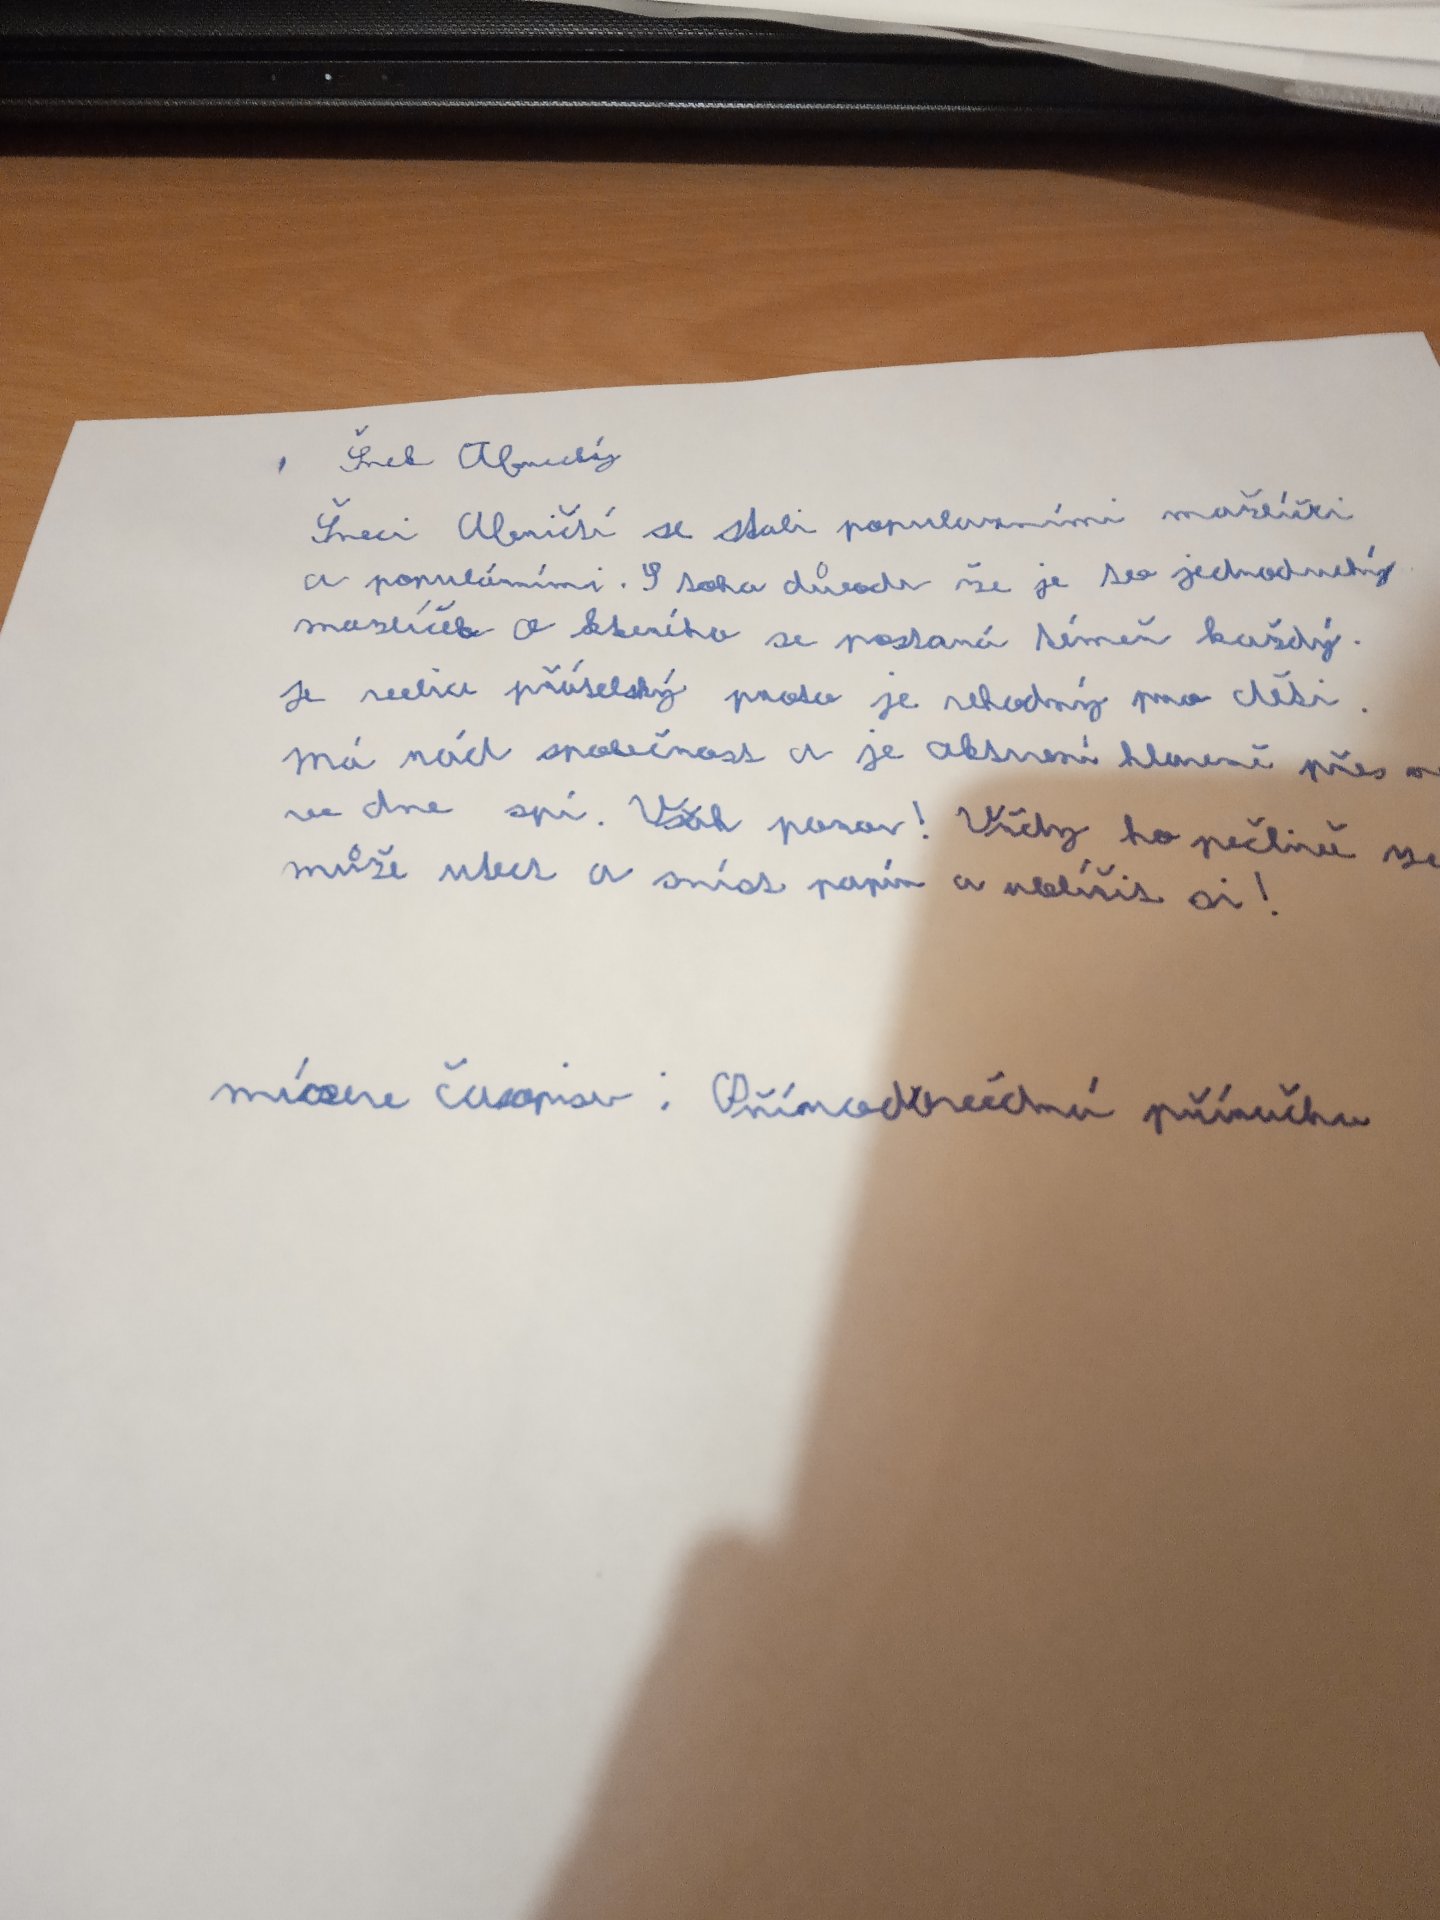 Šnek Africký
Šneci Afričtí se stali popularními mazlíčki
a populárními. Z toha důvodu že je to jednoduchý
mazlíček o kterího se postará téměř každý.
Je velice přátelský proto je vhodný pro děti.
Má rád společnost a je aktivní hlavně přes
ve dne spí. Však pozor! Vždy ho pečlivě
může utect a sníst papír a ublížit si!
název časopisu: Přírodovědná příručka